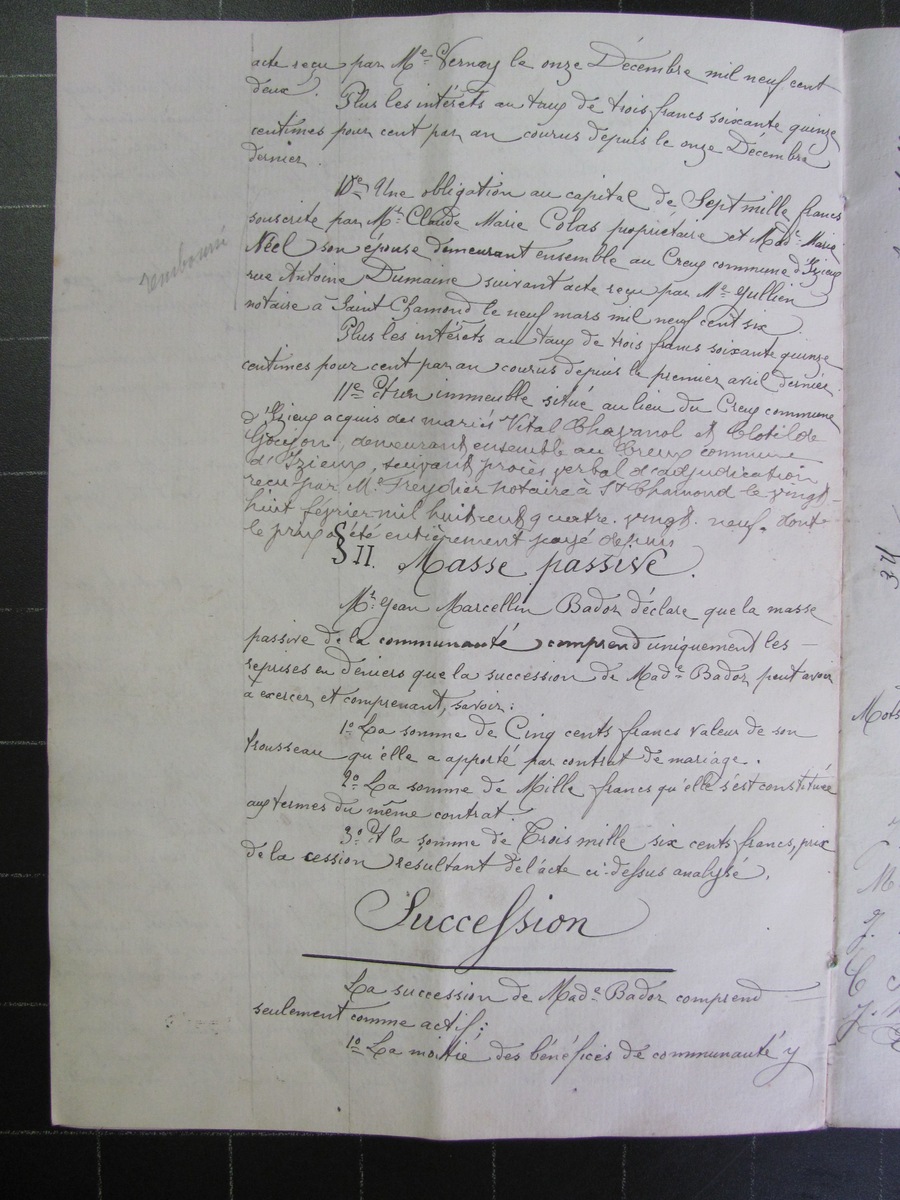 acte reçu par Me Vernay le onze Décembre mil neuf cent
deux.
Plus les intérêts au taux de trois francs soixante quinze
centimes pour cent par an courus depuis le onze Décembre
dernier.
10e Une obligation au capital de Sept mille francs
souscrite par Mr Claude Marie Colas propriétaire et Made Marie
Néel son épouse demeurant ensemble au Creux commune d'Izieux
rue Antoine Dumaine suivant acte reçu par Me Jullien
notaire à Saint Chamond le neuf mars mil neuf cent six.
Plus les intérêts au taux de trois francs soixante quinze
centimes pour cent par an courus depuis le premier avril dernier.
remboursé
11e Et un immeuble situé au lieu du Creux commune
d'Izieux acquis des mariés Vital Chavanol et Clotilde
Goujon, demeurant ensemble au Creux commune
d'Izieux, suivant procès verbal d'adjudication
reçu par Me Freydier notaire à St Chamond le vingt-
huit février mil huit cent quatre-vingt-neuf, dont
le prix a été entièrement payé depuis
§ II. Masse passive.
Mr Jean Marcellin Bador déclare que la masse
passive de la communauté comprend uniquement les
reprises en deniers que la succession de Made Bador peut avoir
à exercer et comprenant, savoir:
1o La somme de Cinq cents francs valeur de son
trousseau qu'elle a apporté par contrat de mariage.
2o La somme de Mille francs qu'elle s'est constituée
aux termes du même contrat.
3o Et la somme de Trois mille six cents francs, prix
de la cession résultant de l'acte ci-dessus analysé.
Succession
La succession de Made Bador comprend
seulement comme actif:
1o La moitié des bénéfices de communauté y
37
Mots
M